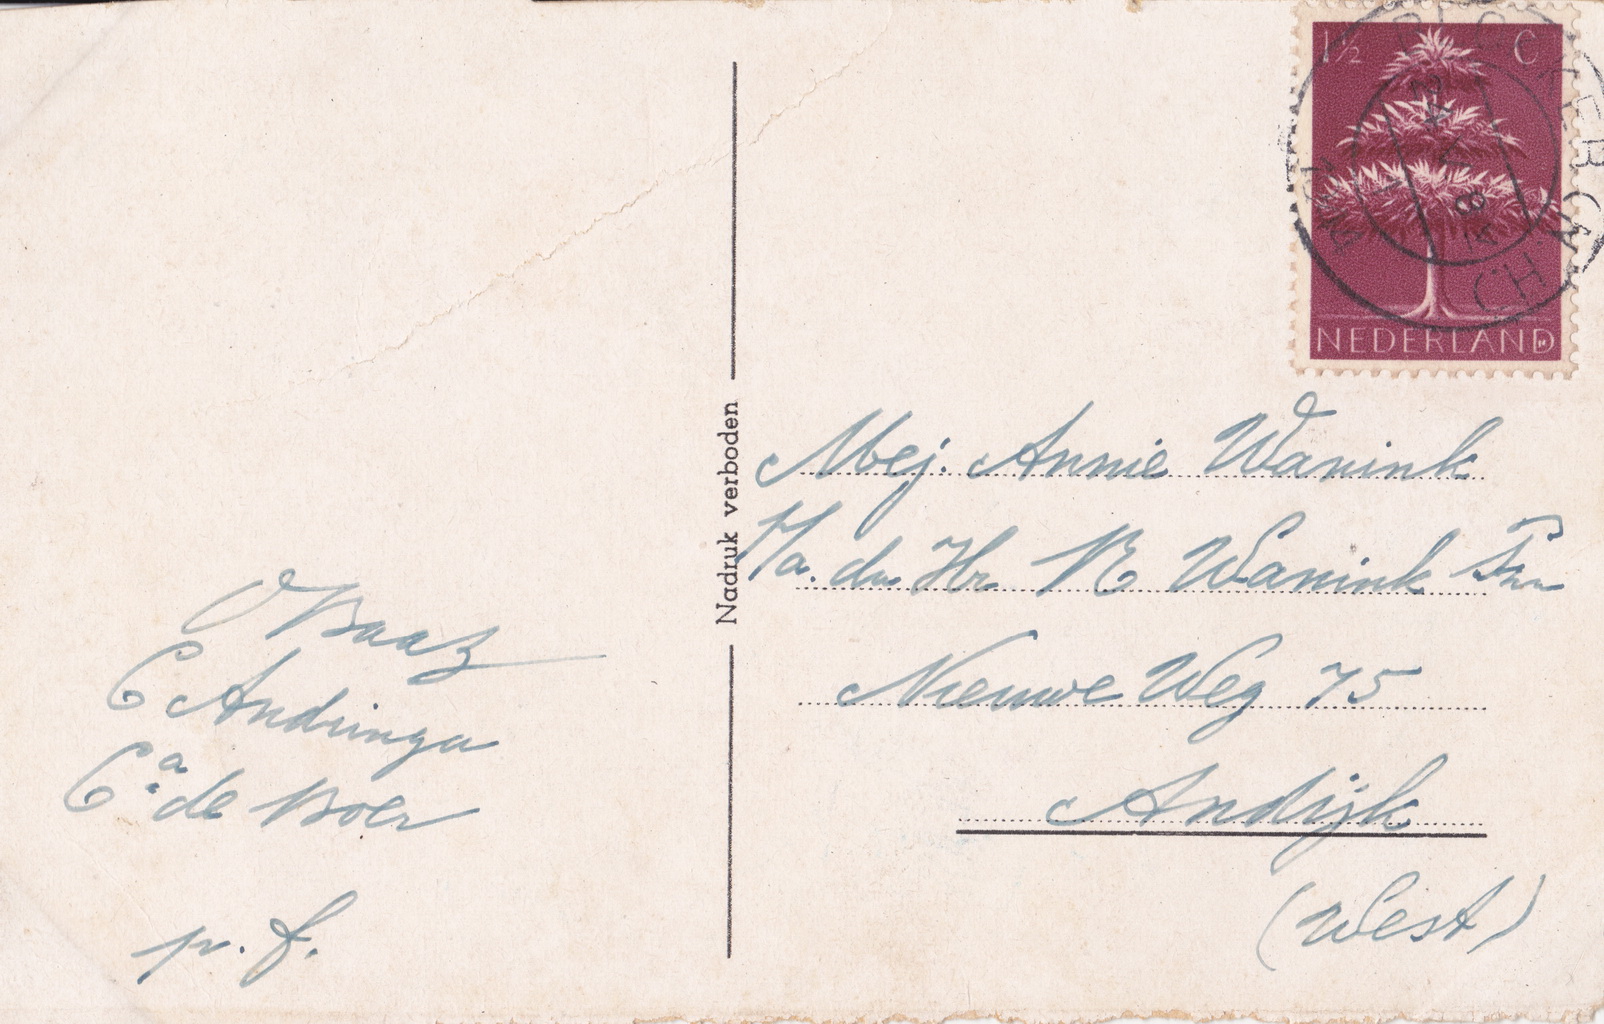 1½ C
NEDERLAND
Nadruk verboden
Mej. Annie Wanink
p/a. den Hr. R Wanink Snr
Nieuwe Weg 75
Andijk
(West)
Baas
C Andringa
Ca. de Boer
p.f.